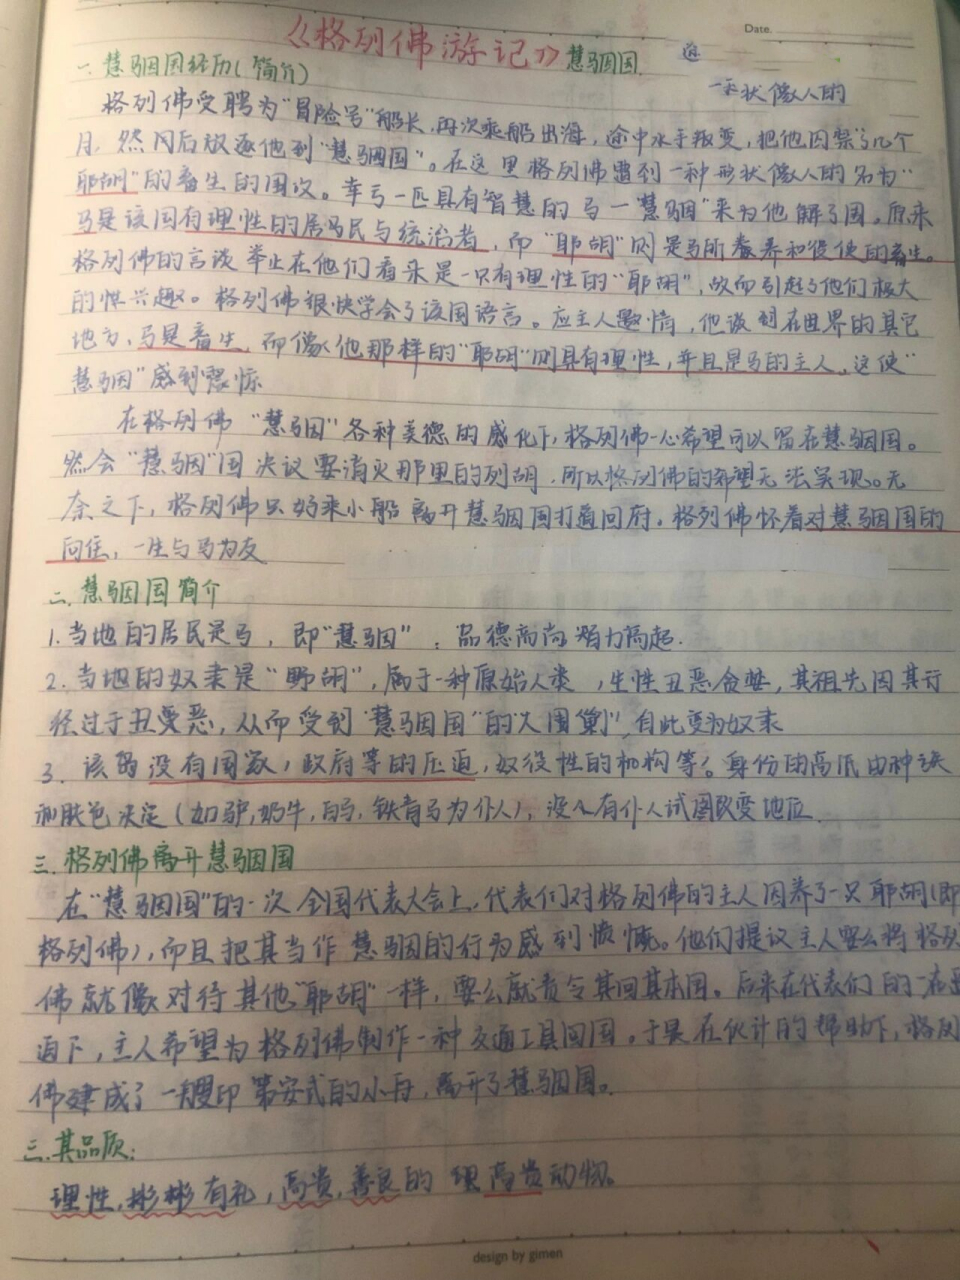 Date.
《格列佛游记》慧骃国
一. 慧骃国经历(简介)
一永状像人的
格列佛受聘为"冒险号"船长,再次乘船出海,途中水手叛变,把他囚禁了几个
月,然后放逐他到"慧骃国"。在这里格列佛遇到一种形状像人的名为"
耶胡"的畜生的围攻。幸亏一匹具有智慧的马一"慧骃"来为他解了围。原来
马是该国有理性的居民与统治者,而"耶胡"则是马所豢养和役使的畜生。
格列佛的言谈举止在他们看来是一只有理性的"耶胡",故而引起了他们极大
的性兴趣。格列佛很快学会了该国语言。应主人邀情,他谈到在世界的其它
地方,马是畜生,而像他那样的"耶胡"则具有理性,并且是马的主人,这使"
慧骃"感到震惊
在格列佛"慧骃"各种美德的感化下,格列佛一心希望可以留在慧骃国。
然会"慧骃"国决议要消灭那里的列胡,所以格列佛的希望无法实现。无
奈之下,格列佛只好乘小船离开慧骃国打道回府。格列佛怀着对慧骃国的
向往,一生与马为友
二. 慧骃国简介
1. 当地的居民是马,即"慧骃",品德高尚 智力高超.
2. 当地的奴隶是"野胡",属于一种原始人类,生性丑恶贪婪,其祖先因其行
经过于丑恶,从而受到"慧骃国"的"大围剿",自此变为奴隶
3. 该国没有国家,政府等的压迫,奴役性的机构等。身份的高低由种族
和肤色决定(如驴,奶牛,白马,铁青马为仆人),没有仆人试图改变地位
三. 格列佛离开慧骃国
在"慧骃国"的一次全国代表大会上,代表们对格列佛的主人因养了一只耶胡(即
格列佛),而且把其当作慧骃的行为感到愤慨。他们提议主人要么将格列
佛就像对待其他"耶胡"一样,要么就责令其回其本国。后来在代表们的一在
迫下,主人希望为格列佛制作一种交通工具回国。于是在伙计的帮助下,格列
佛建成了一艘印第安式的小舟,离开了慧骃国。
三. 其品质:
理性,彬彬有礼,高贵,善良的 高贵动物。
design by gimen